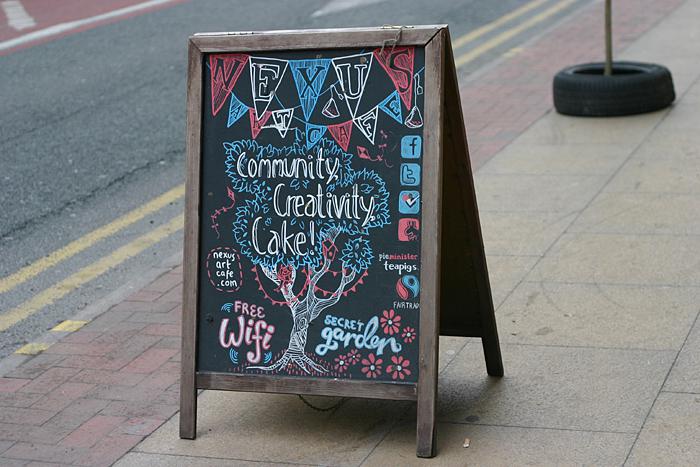 NEXUS
ART CAFE
Community,
Creativity,
Cake!
f
t
nexus
art
cafe
.com
pieminister
teapigs.
FAIRTRADE
FREE
Wifi
SECRET
garden